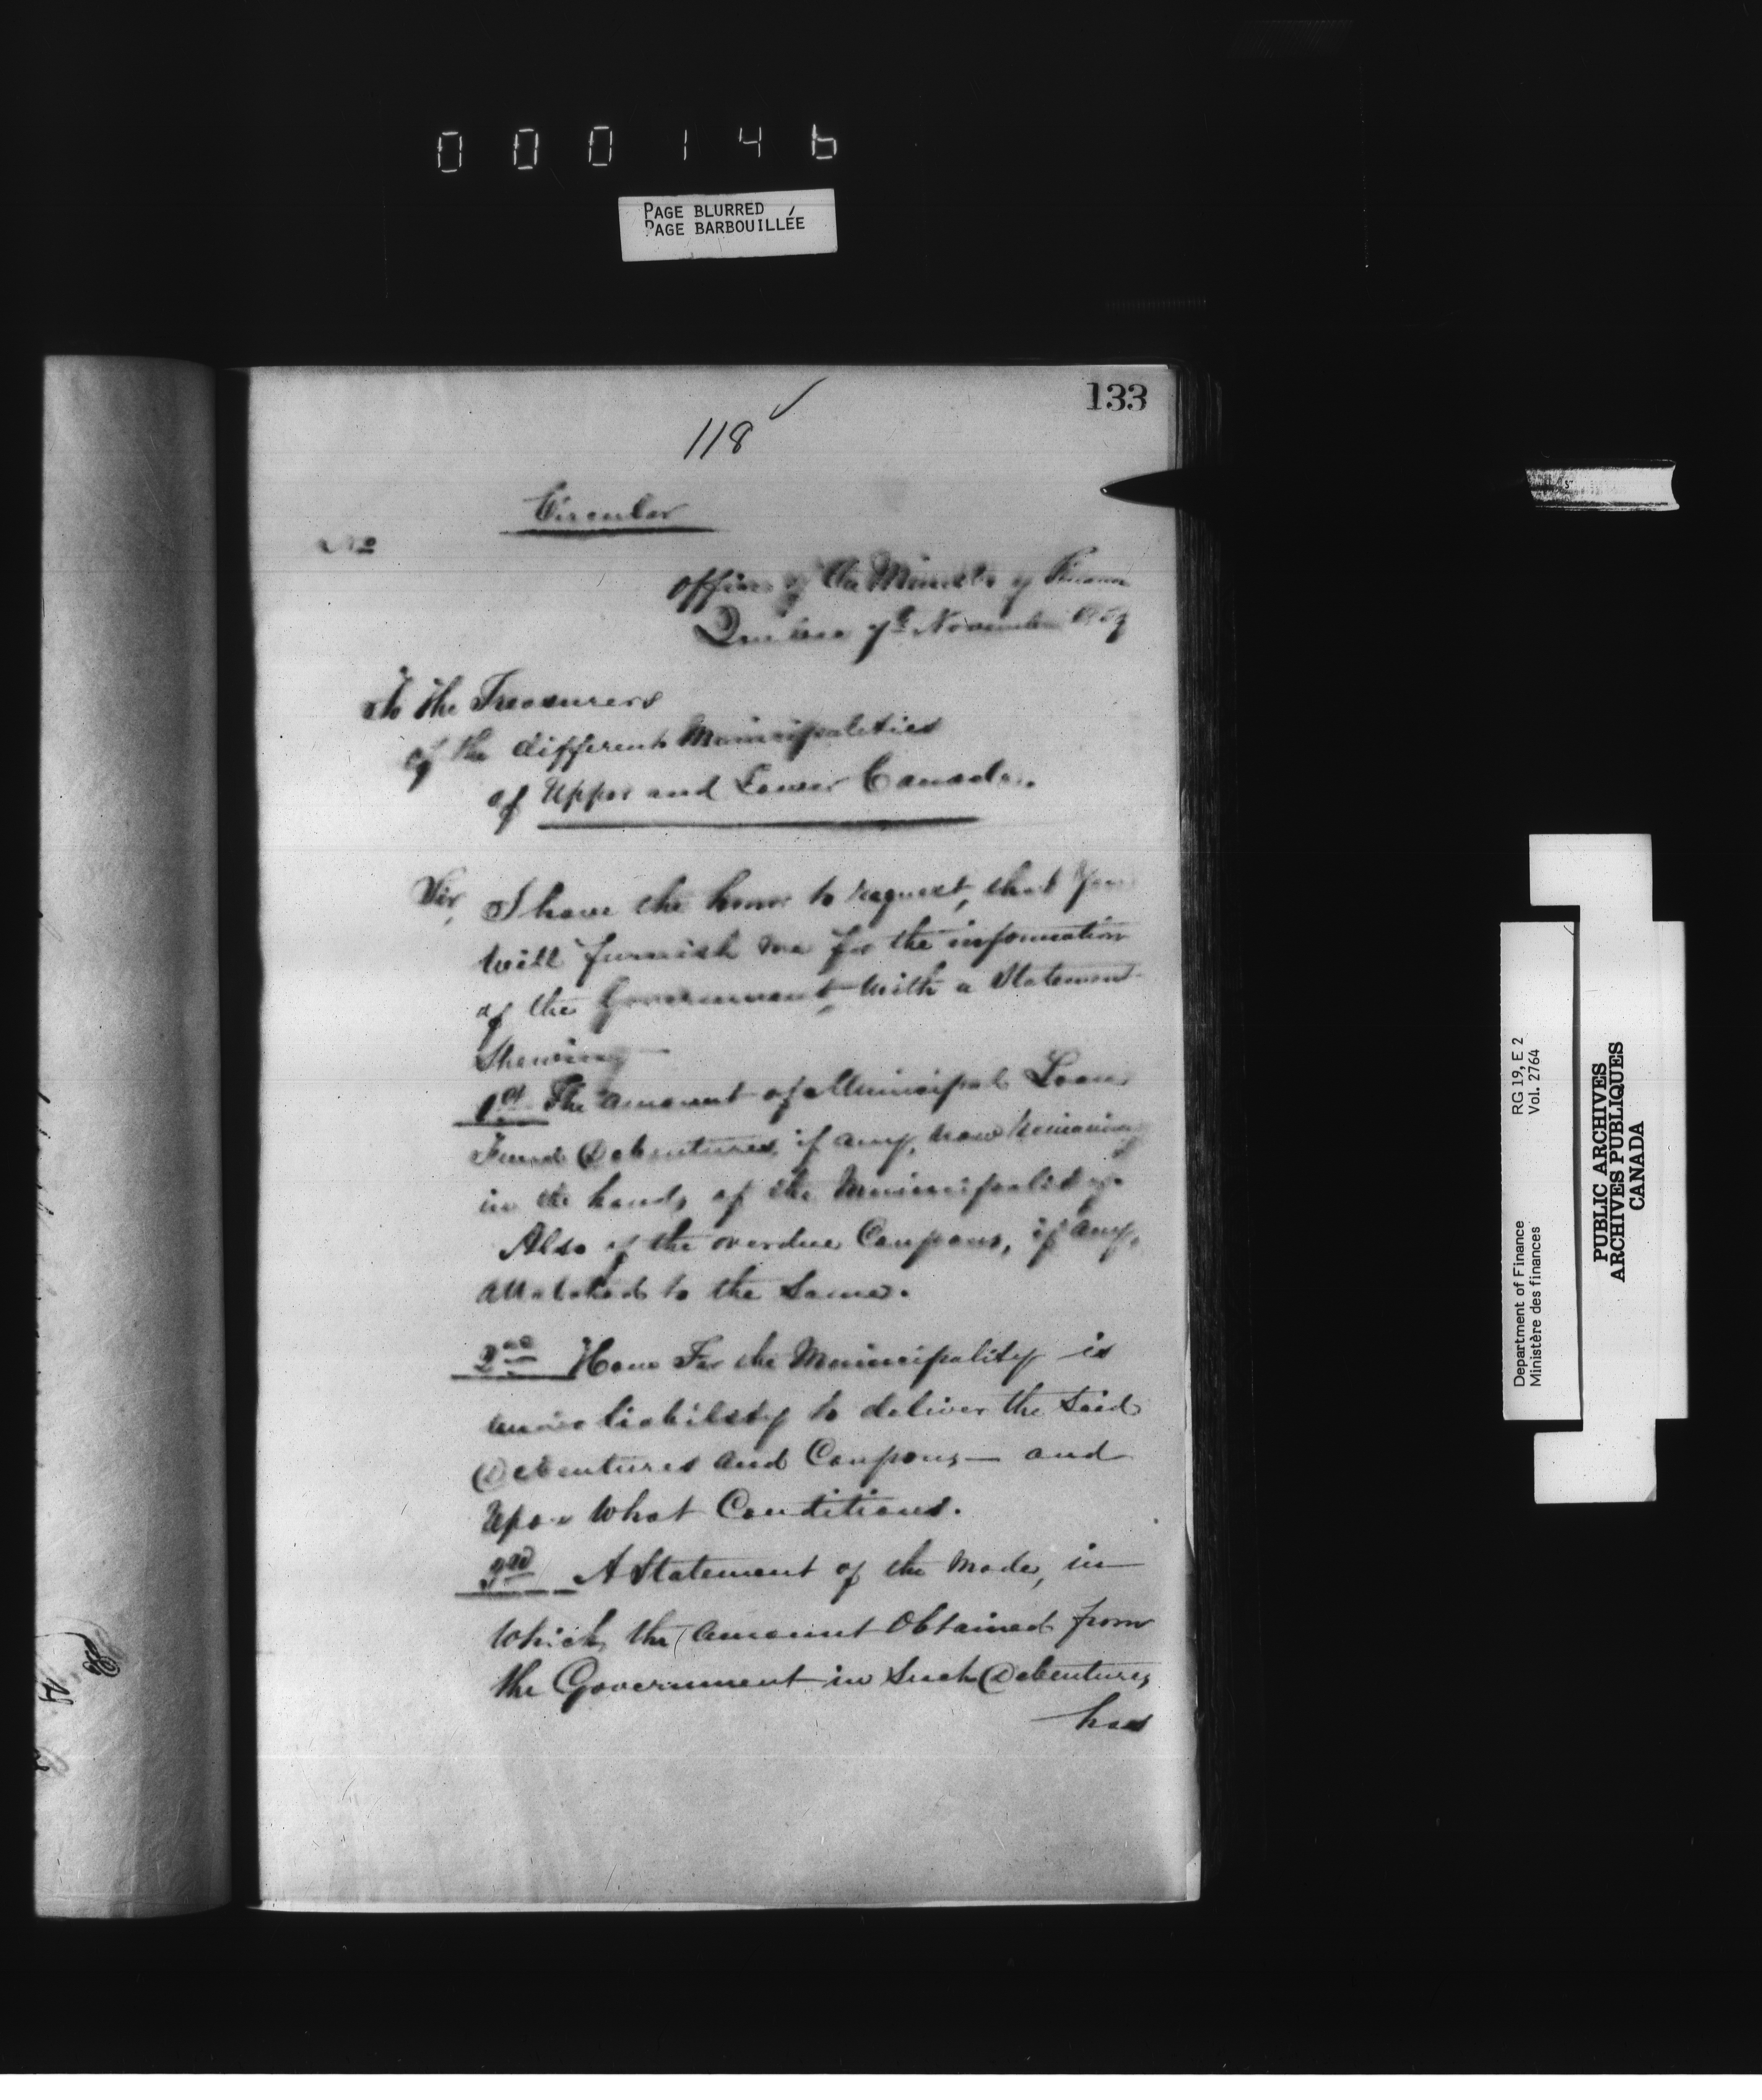 000146
PAGE BLURRED
PAGE BARBOUILLÉE
133
118
Circular
No
Office of the Minister of Finance
Quebec 7th November 1859
To the Treasurers
of the different Municipalities
of Upper and Lower Canada.
Sir, I have the honor to request, that you
will furnish me for the information
of the Government, with a Statement
Shewing
1st The amount of Municipal Loan
Fund Debentures, if any, now remaining
in the hands of the Municipality.
Also of the overdue Coupons, if any,
attached to the Same.
2nd How Far the Municipality is
under liability to deliver the Said
Debentures and Coupons — and
Upon What Conditions.
3rd A Statement of the Mode, in
which the amount Obtained from
the Government in Such Debentures
has
RG 19, E 2
Vol. 2764
Department of Finance
Ministère des finances
PUBLIC ARCHIVES
ARCHIVES PUBLIQUES
CANADA